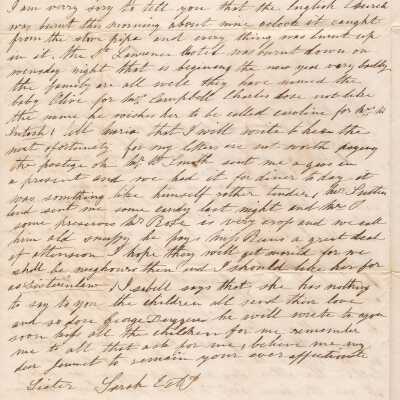 I am verry sory to tell you that the English Church
was burnt this morning about nine oclock it caught
from the stove pipe and every thing was burnt up
in it. the St Lawrence hotel was burnt down on
monday night that is begining the new year very badly
the family are all well they have named the
baby Olive for Mrs Campbell Charles dose not like
the name he wishes her to be called caroline for Mrs Mc
Intosh, tell maria that I will write to her the
next ofortunety for my letters are not worth paying
the postige on Mr Wm Smith sent me a goos in
a present and we had it for diner to day it
was something like himself rather tender, Mrs
and sent me some candy last night and Mrs P
some preserves Mr Rose is very crop and we call
him old snuffy he pays Miss a great deal
of attension I hope they will get marid for we
shall be neighbours then and I should like her for
as Isabell says that she has nothing
to say to you the children all send their love
and so dose George he will write to you
soon kiss all the children for me, remember
me to all that ask for me, believe me my
dear to remain your ever affectionate
Sister Sarah